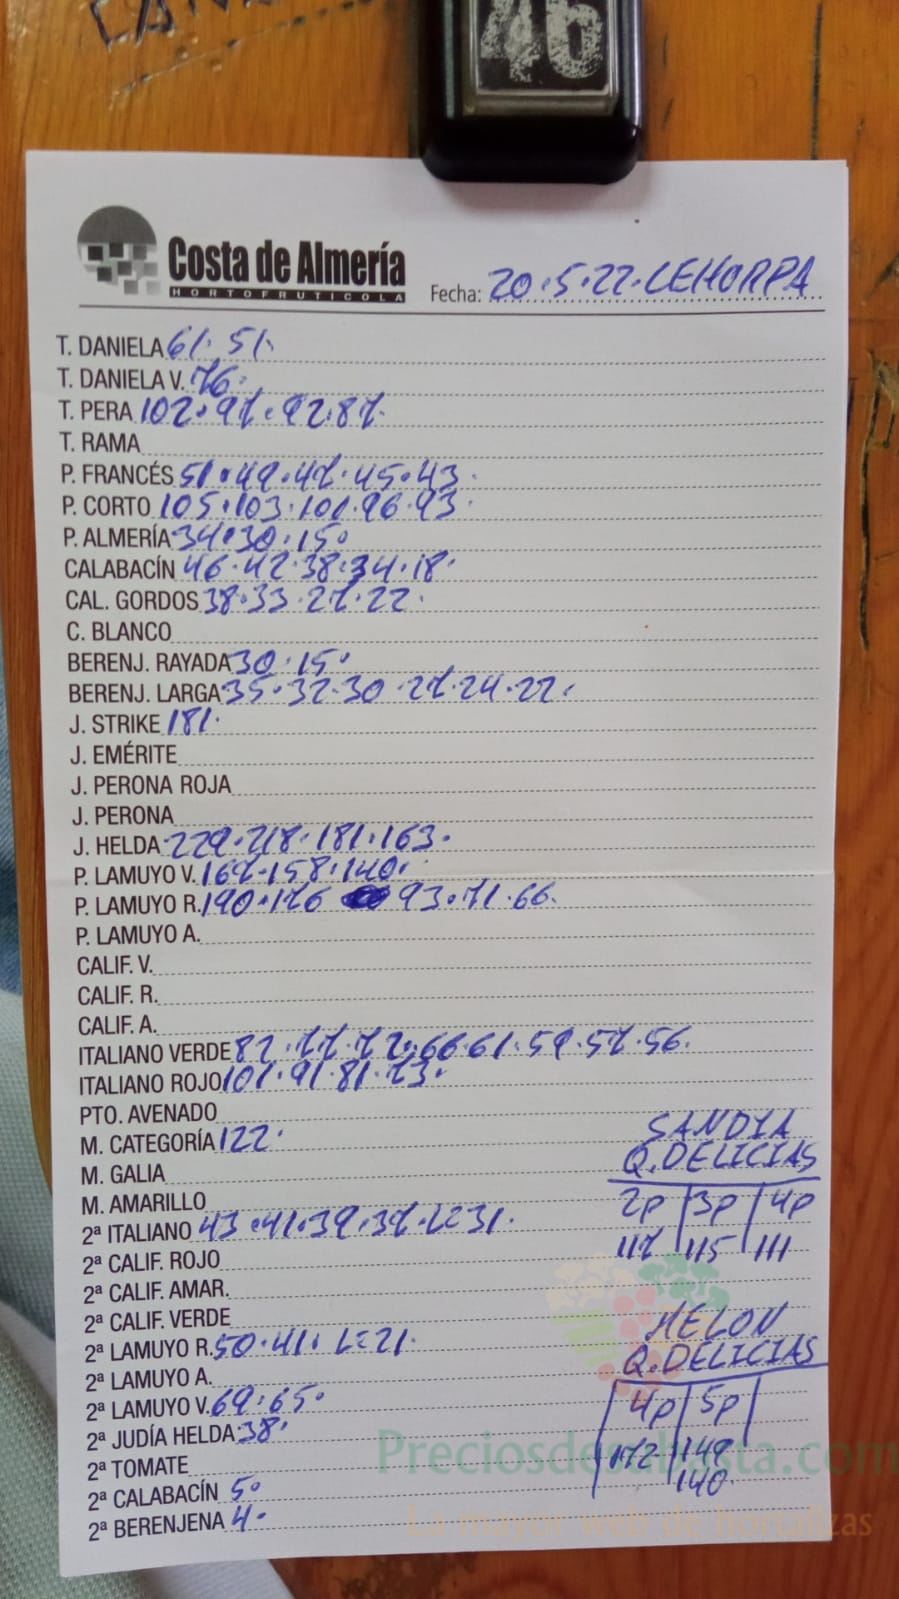 46
Costa de Almería
HORTOFRUTICOLA
Fecha: 20.5.22.LEHORPA
T. DANIELA 61. 51.
T. DANIELA V. 76.
T. PERA 102.97.92.87.
T. RAMA
P. FRANCÉS 51.49.47.45.43.
P. CORTO 105.103.101.96.93.
P. ALMERÍA 34.30.15.
CALABACÍN 46.42.38.34.18.
CAL. GORDOS 38.33.27.22.
C. BLANCO
BERENJ. RAYADA 30.15.
BERENJ. LARGA 35.32.30.27.24.22.
J. STRIKE 181.
J. EMÉRITE
J. PERONA ROJA
J. PERONA
J. HELDA 229.218.181.163.
P. LAMUYO V. 167.158.140.
P. LAMUYO R. 190.176 93.71.66.
P. LAMUYO A.
CALIF. V.
CALIF. R.
CALIF. A.
ITALIANO VERDE 82.77.72.66.61.59.57.56.
ITALIANO ROJO 101.91.81.73.
PTO. AVENADO
M. CATEGORÍA 122.
M. GALIA
M. AMARILLO
2ª ITALIANO 43.41.39.37.L=31.
2ª CALIF. ROJO
2ª CALIF. AMAR.
2ª CALIF. VERDE
2ª LAMUYO R. 50.41. L=21.
2ª LAMUYO A.
2ª LAMUYO V. 69.65.
2ª JUDÍA HELDA 38.
2ª TOMATE
2ª CALABACÍN 5.
2ª BERENJENA 4.
SANDIA
Q.DELICIAS
2p 3p 4p
117 115 111
MELON
Q.DELICIAS
4p 5p
172 149
140.
Preciosdesubasta.com
La mayor web de hortalizas